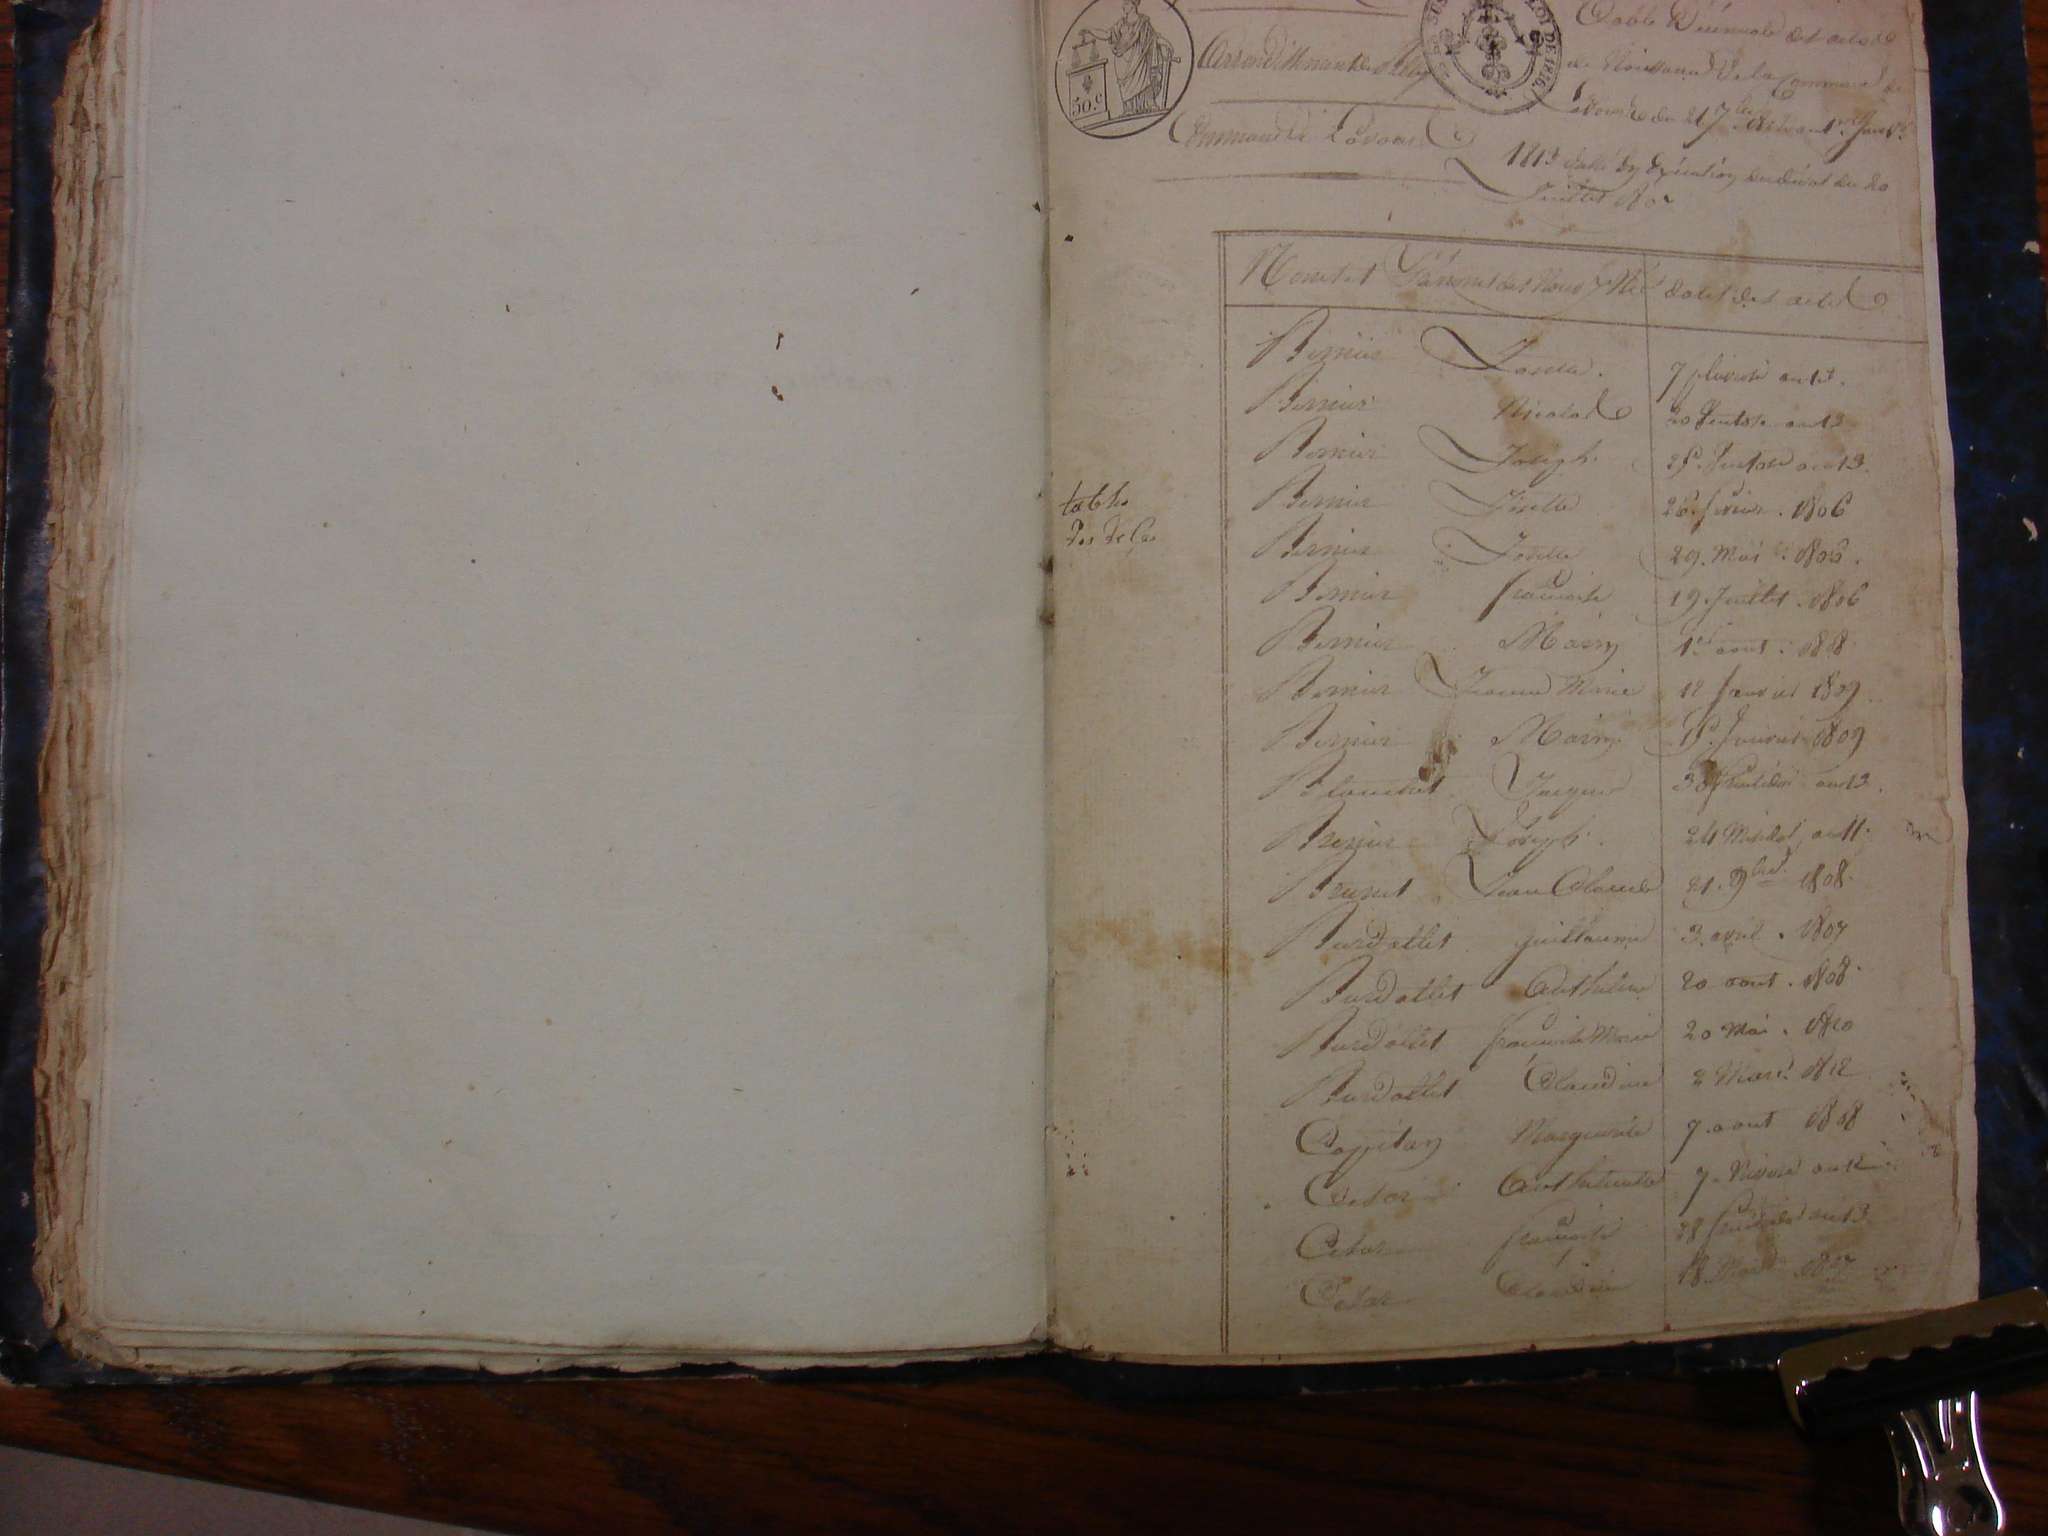 50.c
LOI DE 1816.
Arrondissement de
Commune de
Table Décennale des actes de
de Naissance De la Commune de
du 21 7bre au 1er Janvr
1813 faite En Exécution du décret du 20
Juillet 1807
Noms et Prénoms des Nouv x Nés dates des actes
Bernier Josette. 7 pluviose an 12.
Bernier Nicolas 20 Ventose an 13
Bernier Joseph. 25. Ventose an 13.
table
des
Bernier Josette 26. fevrier. 1806
Bernier Josette 29. Mai. 1806.
Bernier francoise 19. Juillet. 1806
Bernier Marie 1er aout. 1808.
Bernier Jeanne Marie 12 Janvier 1809
Bernier Marie. 15. Janvier 1809
Blanchet Jacques 30 an 13.
Bernier Joseph. 24 Messidor an 11.
Brunet Jean Claude 21. 9bre. 1808.
Burdallet guillaume 3. avril. 1807
Burdallet Anthelme 20 aout. 1808.
Burdallet francoise Marie 20 Mai. 1810
Burdallet Claudine 2 Mars 1812
Cappitan Marguerite 7. aout 1808
Cesar Anthelmette 7. Nivose an 12
Cesar francoise 28 fructidor an 13
Cesar Claudine 18. 1807